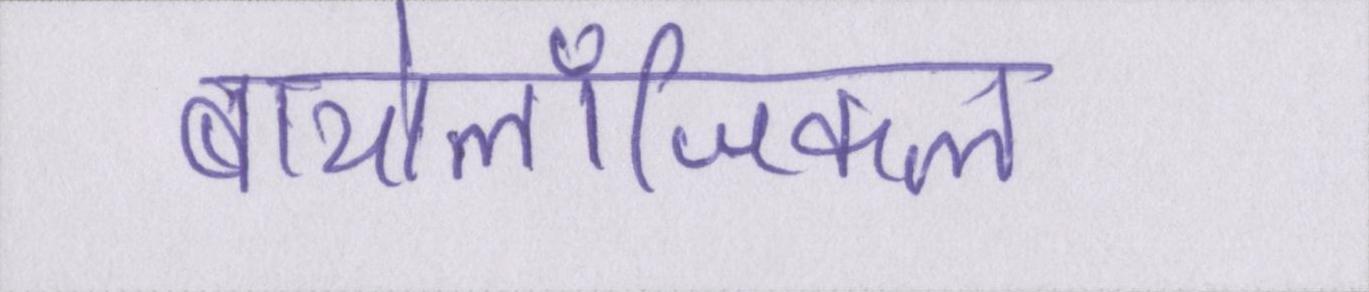 बायोलॉजिकल